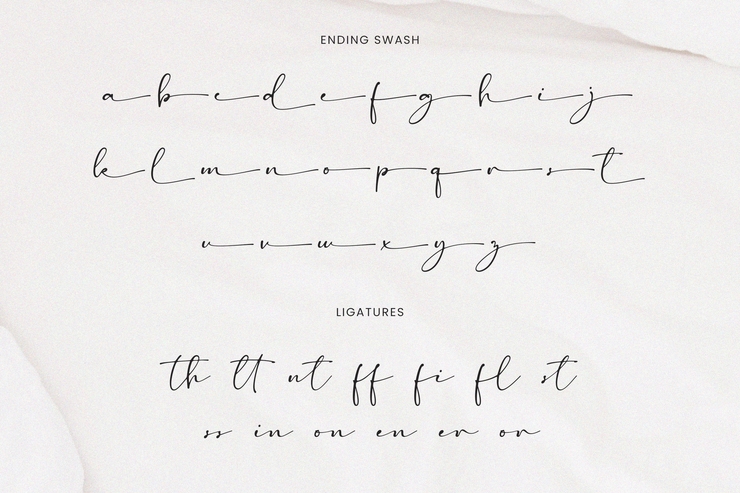 ENDING SWASH
a b c d e f g h i j
k l m n o p q r s t
u v w x y z
LIGATURES
th tt nt ff fi fl st
ss in on en er or